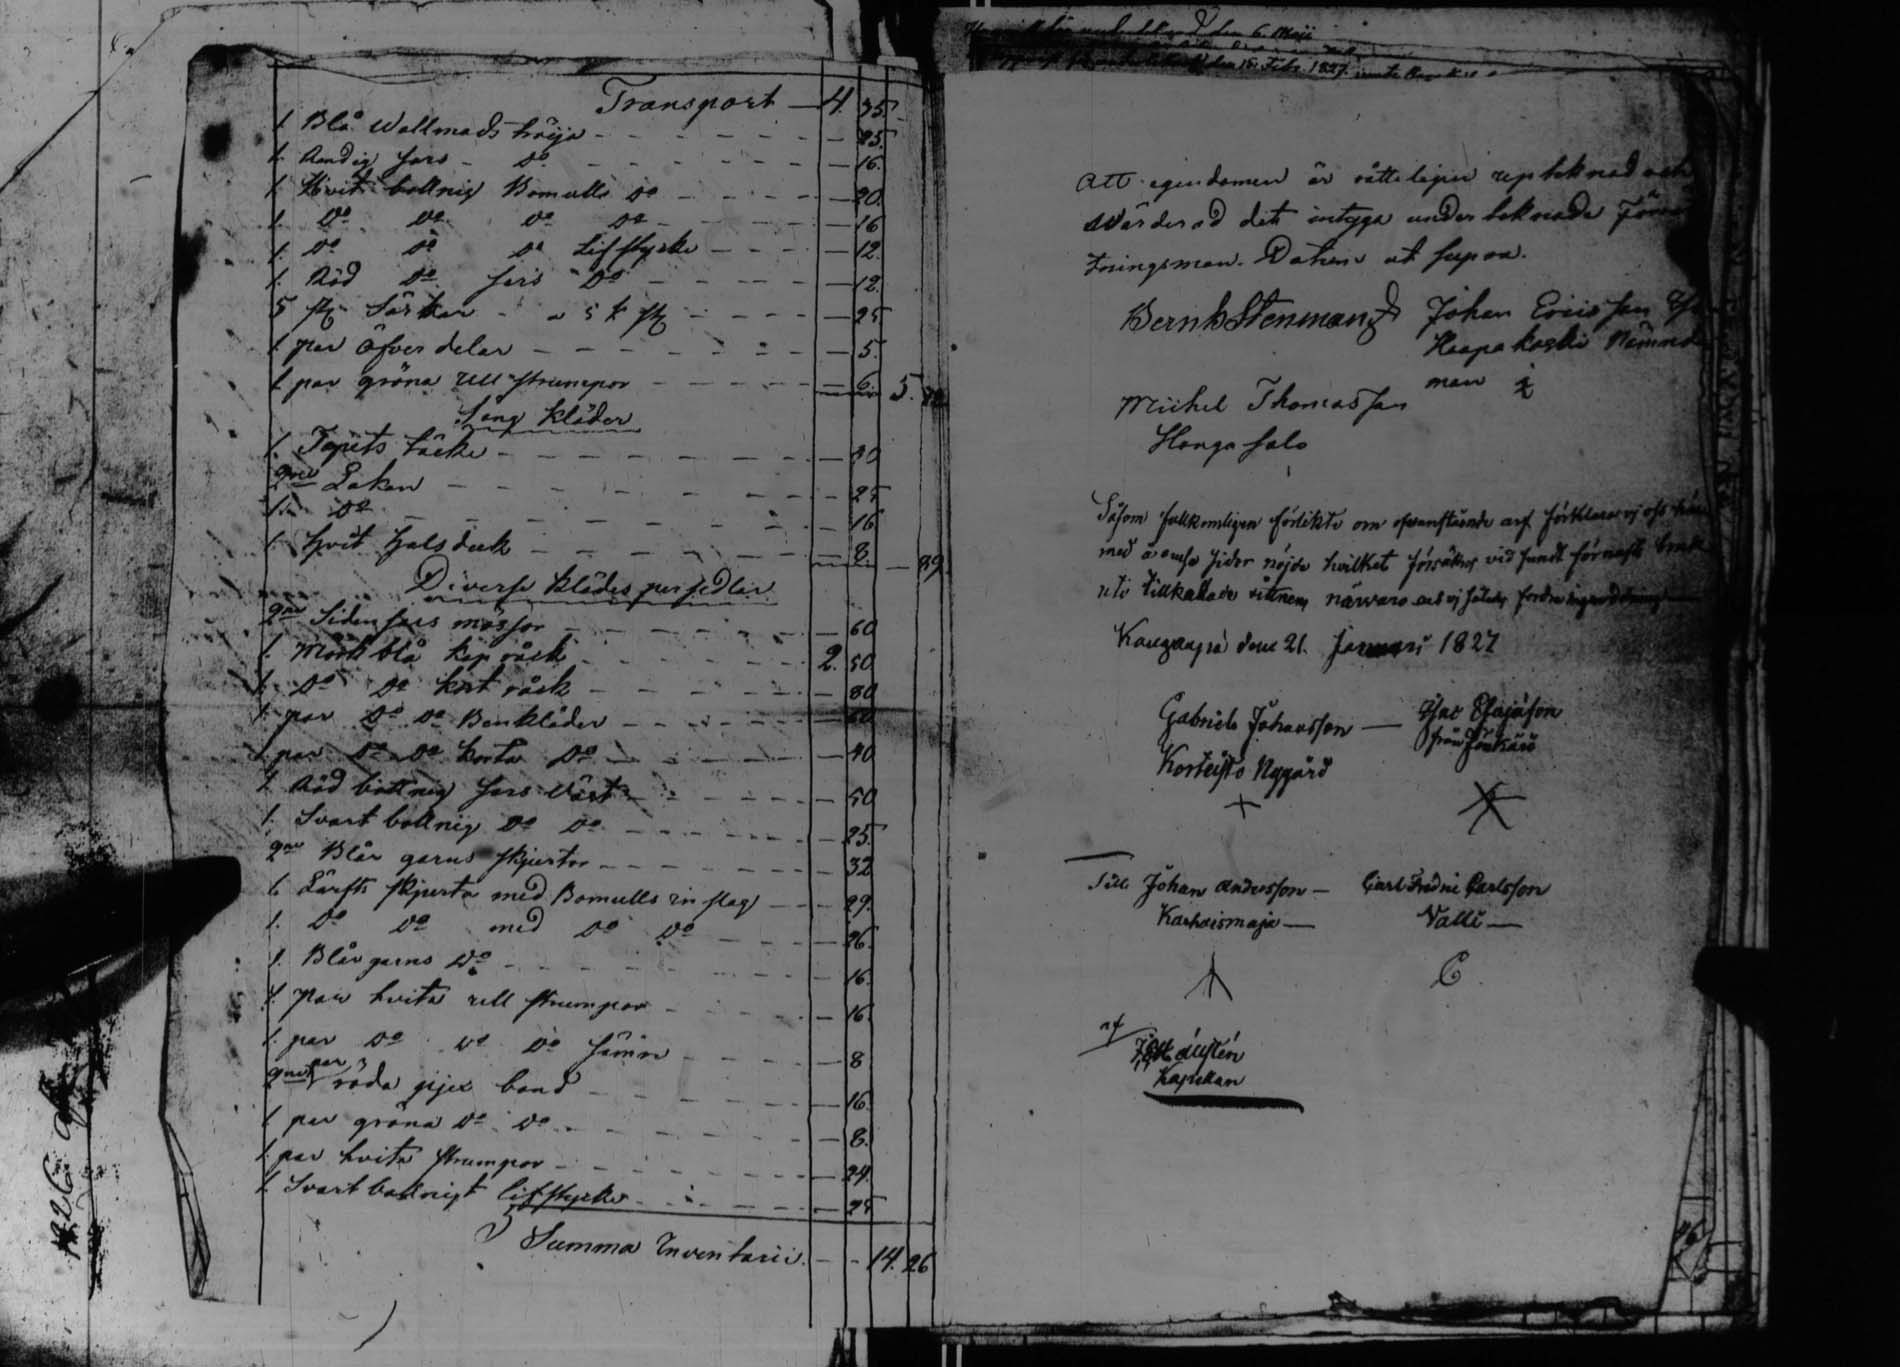 Transport — 4. 35.
1. Blå Wallmads tröija — 25.
1. Randig fars — Do — 16.
1. Hvit bottnig Bomulls Do — 20.
1. Do Do Do Do — 16
1. Do Do Do Lifstycke — 12.
1. Röd Do fars Do — 12.
5 st Särkar — a 5 k st — 25
1. par Öfver delar — 5.
1 par gröna ull strumpor — 6. 5.
Säng kläder
1. Tapets täcke — 30
2ne Lakan — 25
1. Do — 16
1. Hvit Halsduk — 8 — 89.
Diverse klädes persedlar
2ne Siden fars mössor — 60
1. Mörk blå kap råck — 2. 50
1. Do Do kort råck — 80
1. par Do Do Benkläder — 60
1 par Do Do korta Do — 40
1 Röd bottnig fars Väst — 50
1. Svart bottnig Do Do — 25.
2ne Blår garns skjortor — 32
1. Lärfts skjorta med Bomulls in slag — 29.
1. Do Do med Do Do — 26.
1. Blår garns Do — 16.
1. par hvita ull strumpor — 16.
1. par Do Do Do sämre — 8
2ne par röda band — 16.
1 par gröna Do Do — 8.
1 par hvita strumpor — 24.
1 Svart bottnigt lifstycke — 25
Summa Inventarii — 14. 26
den 6. Maji
den 15. Febr. 1827.
Att egendomen är rätteligen upteknad och
värderad det intyga underteknade
tningsman. Datum ut supra.
Bernh Stenman Johan Ericsson
Haapakoski Nämnde
man
Michel Thomasson
Honga salo
Såsom fullkomligen förlikte om ofvanstående arf förklara vj oss
med å ömse sidor nöjde hvilket försäkras vid
uti tillkallade vittnens närvaro
Kangaspä den 21. Januari 1827
Gabriel Johansson — Isac Esajason
Korteisto Nygård från
Till Johan Andersson — Carl Fredric Carlsson
Karhaismaja — Valli —
af
Kapellan
1826